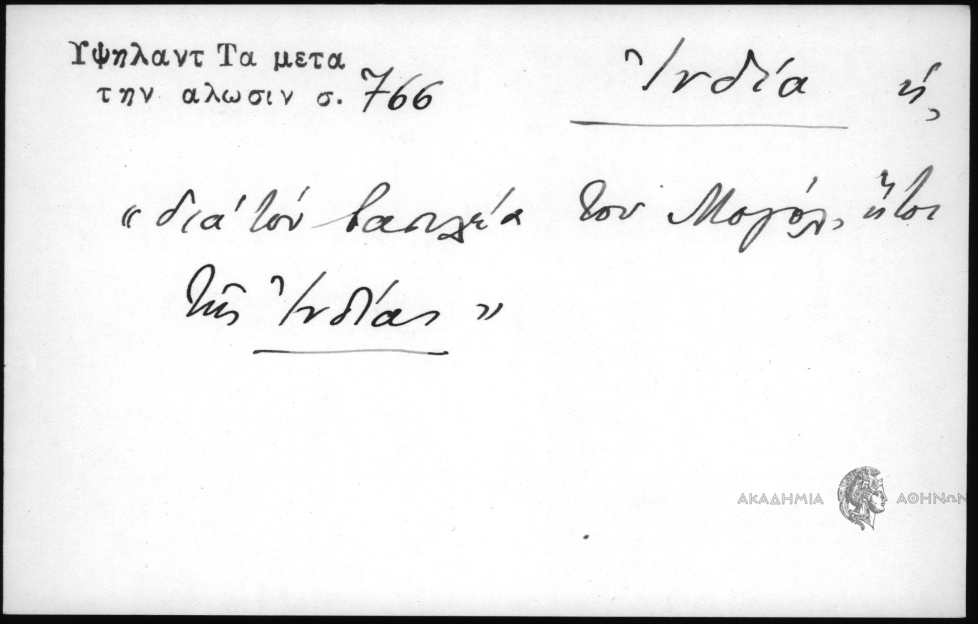 Υψηλαντ Τα μετα
την αλωσιν σ. 766
Ἰνδία ἡ,
« διὰ τὸν βασιλέα τοῦ Μογόλ, ἤτοι
τῆς Ἰνδίας »
ΑΚΑΔΗΜΙΑ ΑΘΗΝΩΝ